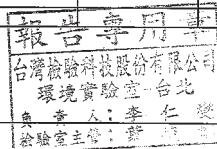 報告專用章
台灣檢驗科技股份有限公司
環境實驗室-台北
負責人:李仁燮
檢驗室主管: